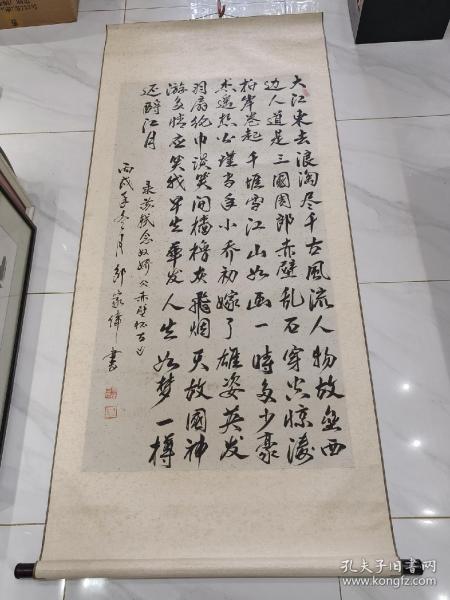 大江东去浪淘尽千古风流人物故垒西
边人道是三国周郎赤壁乱石穿空惊涛
拍岸卷起千堆雪江山如画一时多少豪
杰遥想公瑾当年小乔初嫁了雄姿英发
羽扇纶巾谈笑间樯橹灰飞烟灭故国神
游多情应笑我早生华发人生如梦一樽
还酹江月
录苏轼念奴娇赤壁怀古
丙戌年冬月 邹家伟书
孔夫子旧书网
www.kongfz.com